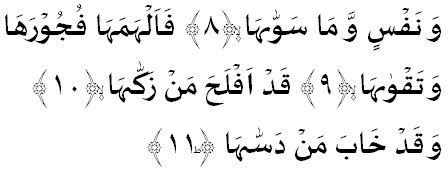 وَ نَفۡسٍ وَّ مَا سَوّٰٮہَا ۪ۙ﴿۸﴾ فَاَلۡہَمَہَا فُجُوۡرَہَا
وَ تَقۡوٰٮہَا ۪ۙ﴿۹﴾ قَدۡ اَفۡلَحَ مَنۡ زَکّٰٮہَا ۪ۙ﴿۱۰﴾
وَ قَدۡ خَابَ مَنۡ دَسّٰٮہَا ﴿ؕ۱۱﴾